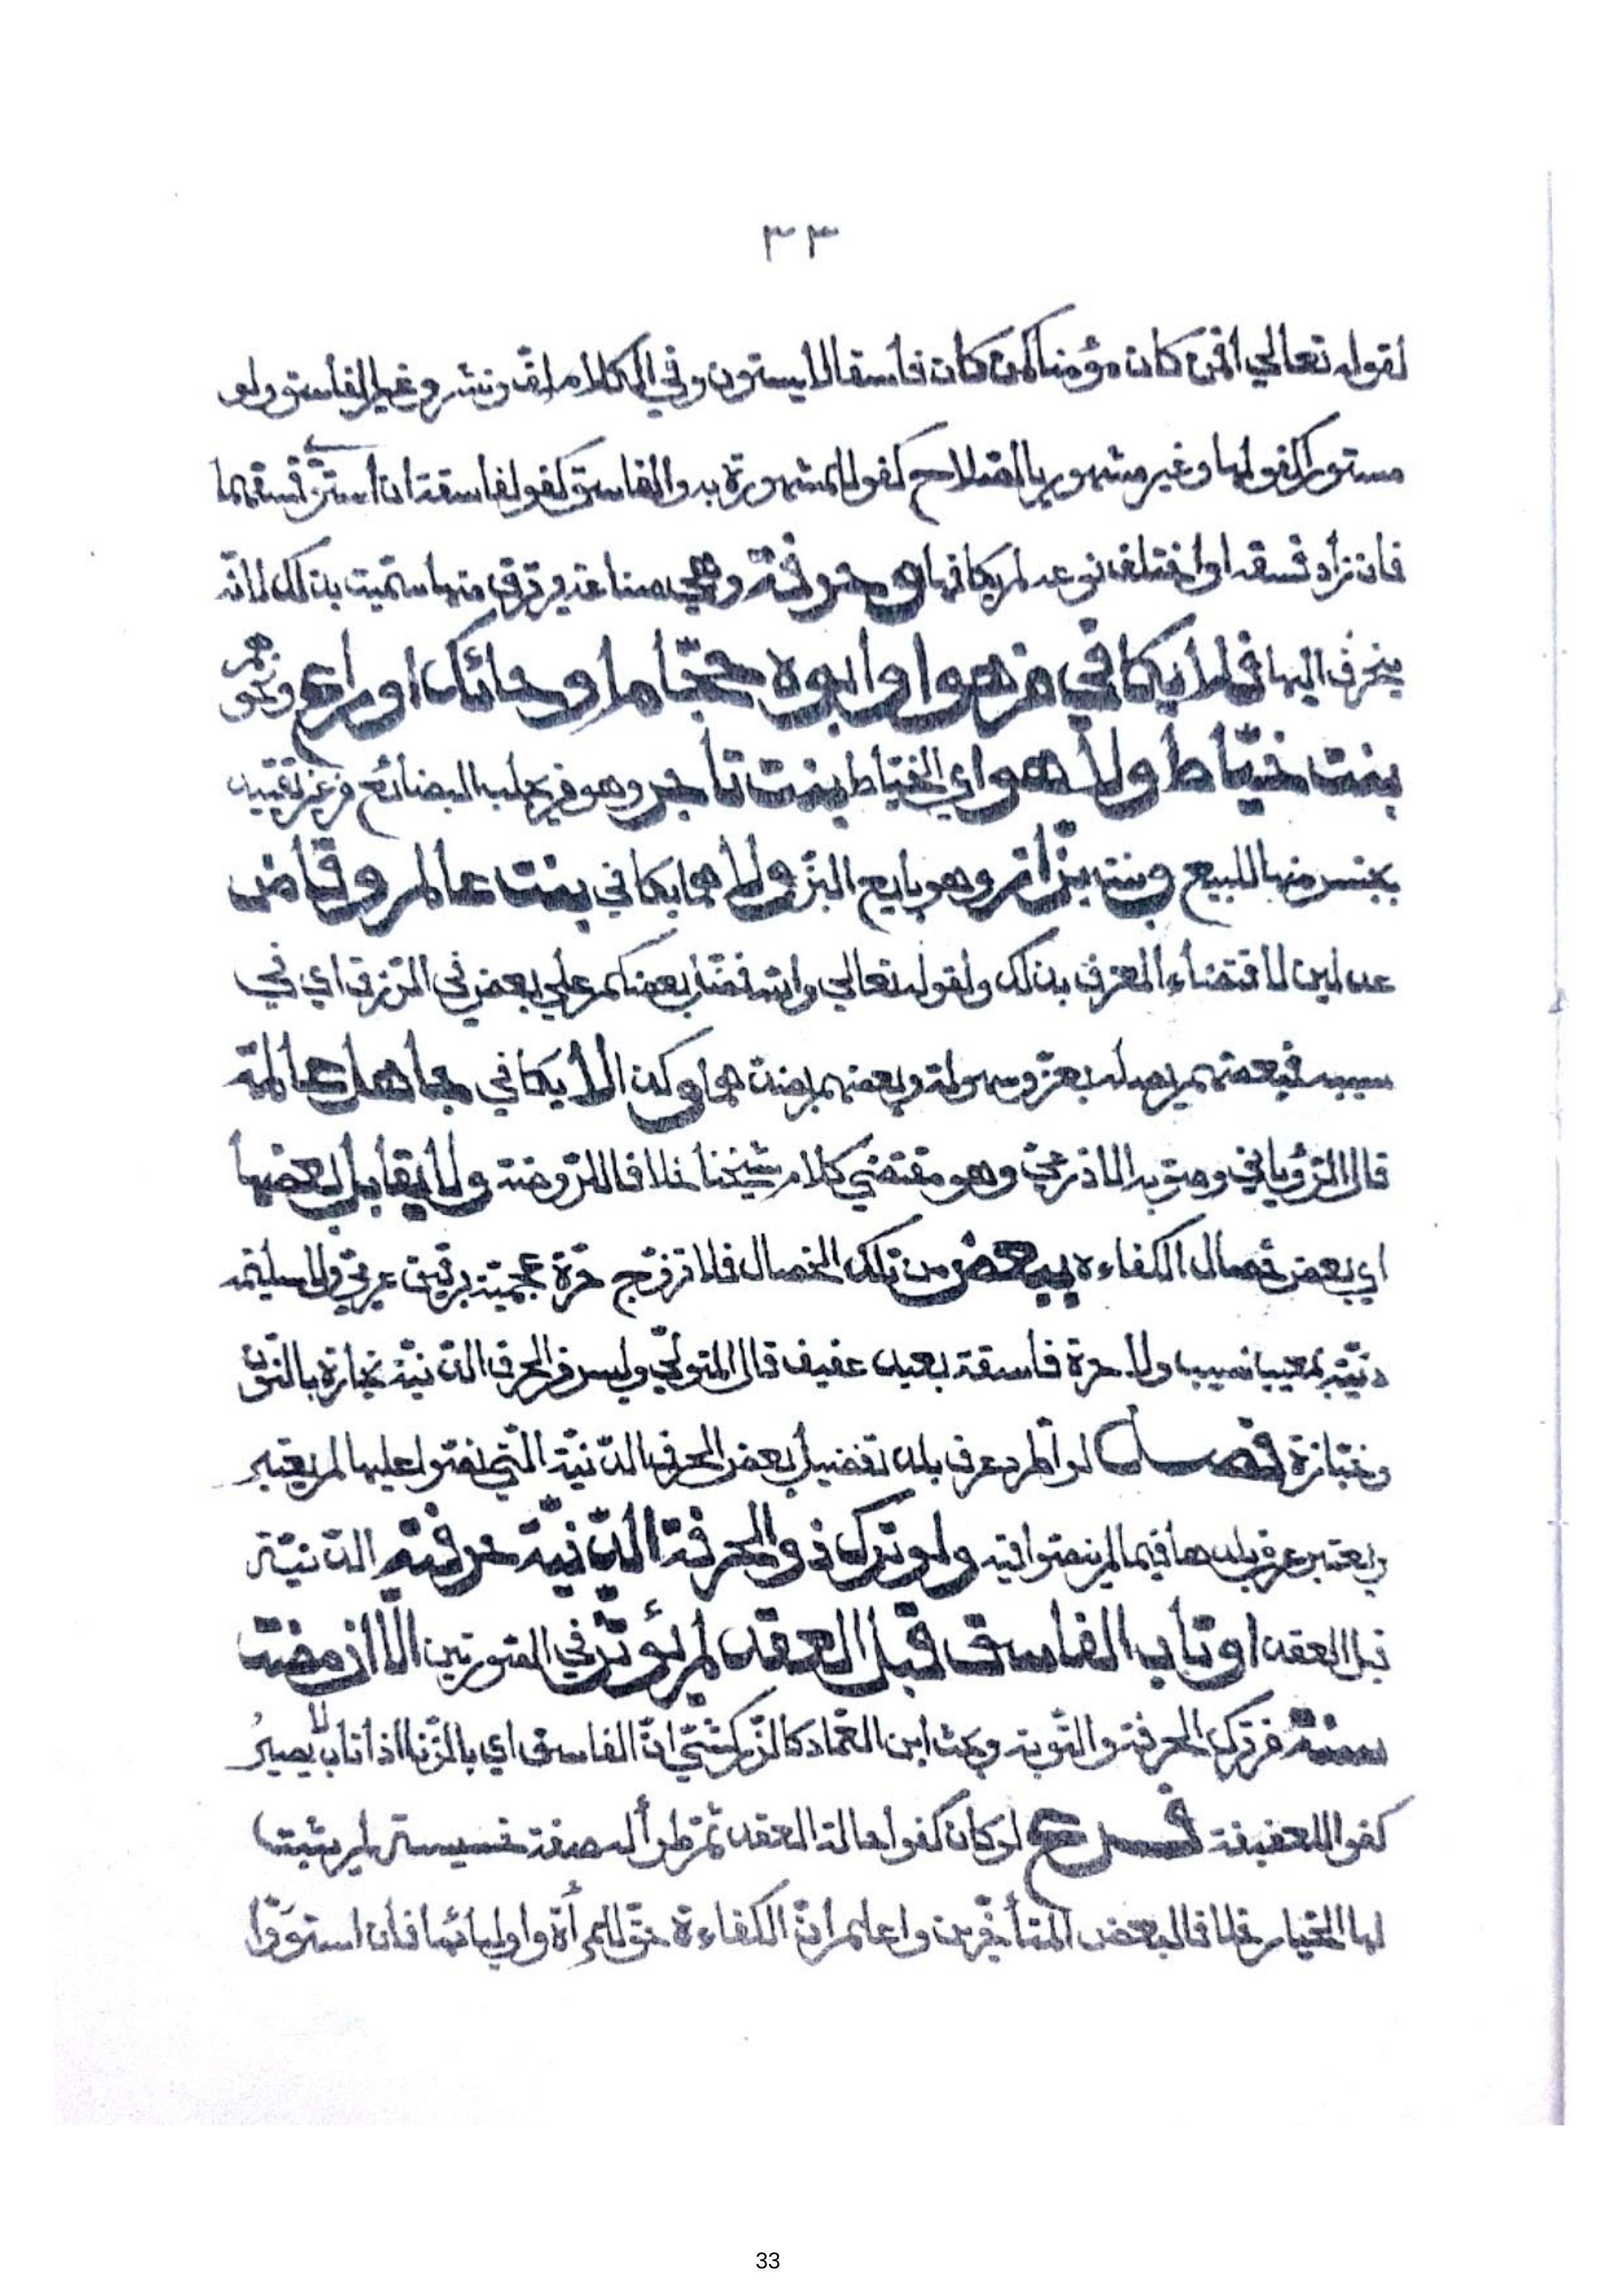 ٣٣
لقوله تعالى افمن كان مؤمنا كمن كان فاسقا لا يستوون وفي الكلام لف ونشر وغير الفاسق ولو
مستورا كفو لها وغير مشهور بالصلاح كفو للمشهورة به والفاسق كفو لفاسقة ان استوى فسقهما
فان زاد فسقه او اختلف نوعه لم يكافها و حرفة وهي صناعة يرتزق منها سميت بذلك لانه
ينحرف اليها فلا يكافي من هو او ابوه حجاما او حائك او راع ونحوهم
بنت خياط ولا هو اي الخياط بنت تاجر وهو من يجلب البضائع من غير تقييد
بجنس منها للبيع وبنت بزاز وهو بايع البز ولا هما يكافي بنت عالم وقاض
عدلين لاقتضاء العرف بذلك ولقوله تعالى والله فضل بعضكم على بعض في الرزق اي في
سببه فبعضهم يصله بعز وسهولة وبعضهم بضدهما وكذا لا يكافي جاهل عالمة
قال الرؤياني وصوبه الاذرعي وهو مقتضى كلام شيخنا خلافا للروضة ولا يقابل بعضها
اي بعض خصال الكفاءة ببعض من تلك الخصال فلا تزوج حرة عجمية برقيق عربي ولا سليمة
دنية بمعيب نسيب ولا حرة فاسقة بعبد عفيف قال المتولي وليس من الحرف الدنية نجارة بالنون
وخبازة فصل لو اطرد عرف بلد تفضيل بعض الحرف الدنية التي نصوا عليها لم يعتبر
ويعتبر عرف بلدها فيما لم ينصوا فيه ولو ترك ذو الحرفة الدنية حرفته الدنية
قبل العقد او تاب الفاسق قبل العقد لم يؤثر في الصورتين الا ان مضت
سنة من ترك الحرفة والتوبة وبحث ابن العماد كالزركشي ان الفاسق اي بالزنا اذا تاب لا يصير
كفوا للعفيفة فرع لو كان كفوا حالة العقد ثم طرأ له صفة خسيسة لم يثبت
لها الخيار خلافا لبعض المتأخرين واعلم ان الكفاءة حق للمرأة واوليائها فان استووا
33